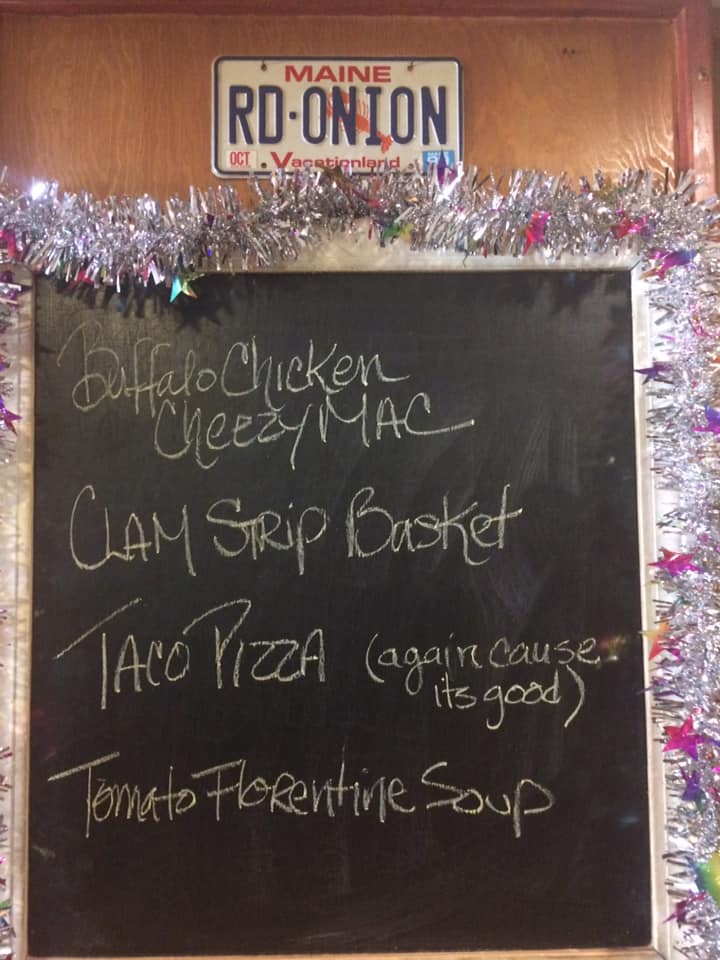 MAINE
RD·ONION
OCT Vacationland
Buffalo Chicken
Cheezy MAC
CLAM STRip Basket
TACO PIZZA (again cause
its good)
Tomato Florentine Soup